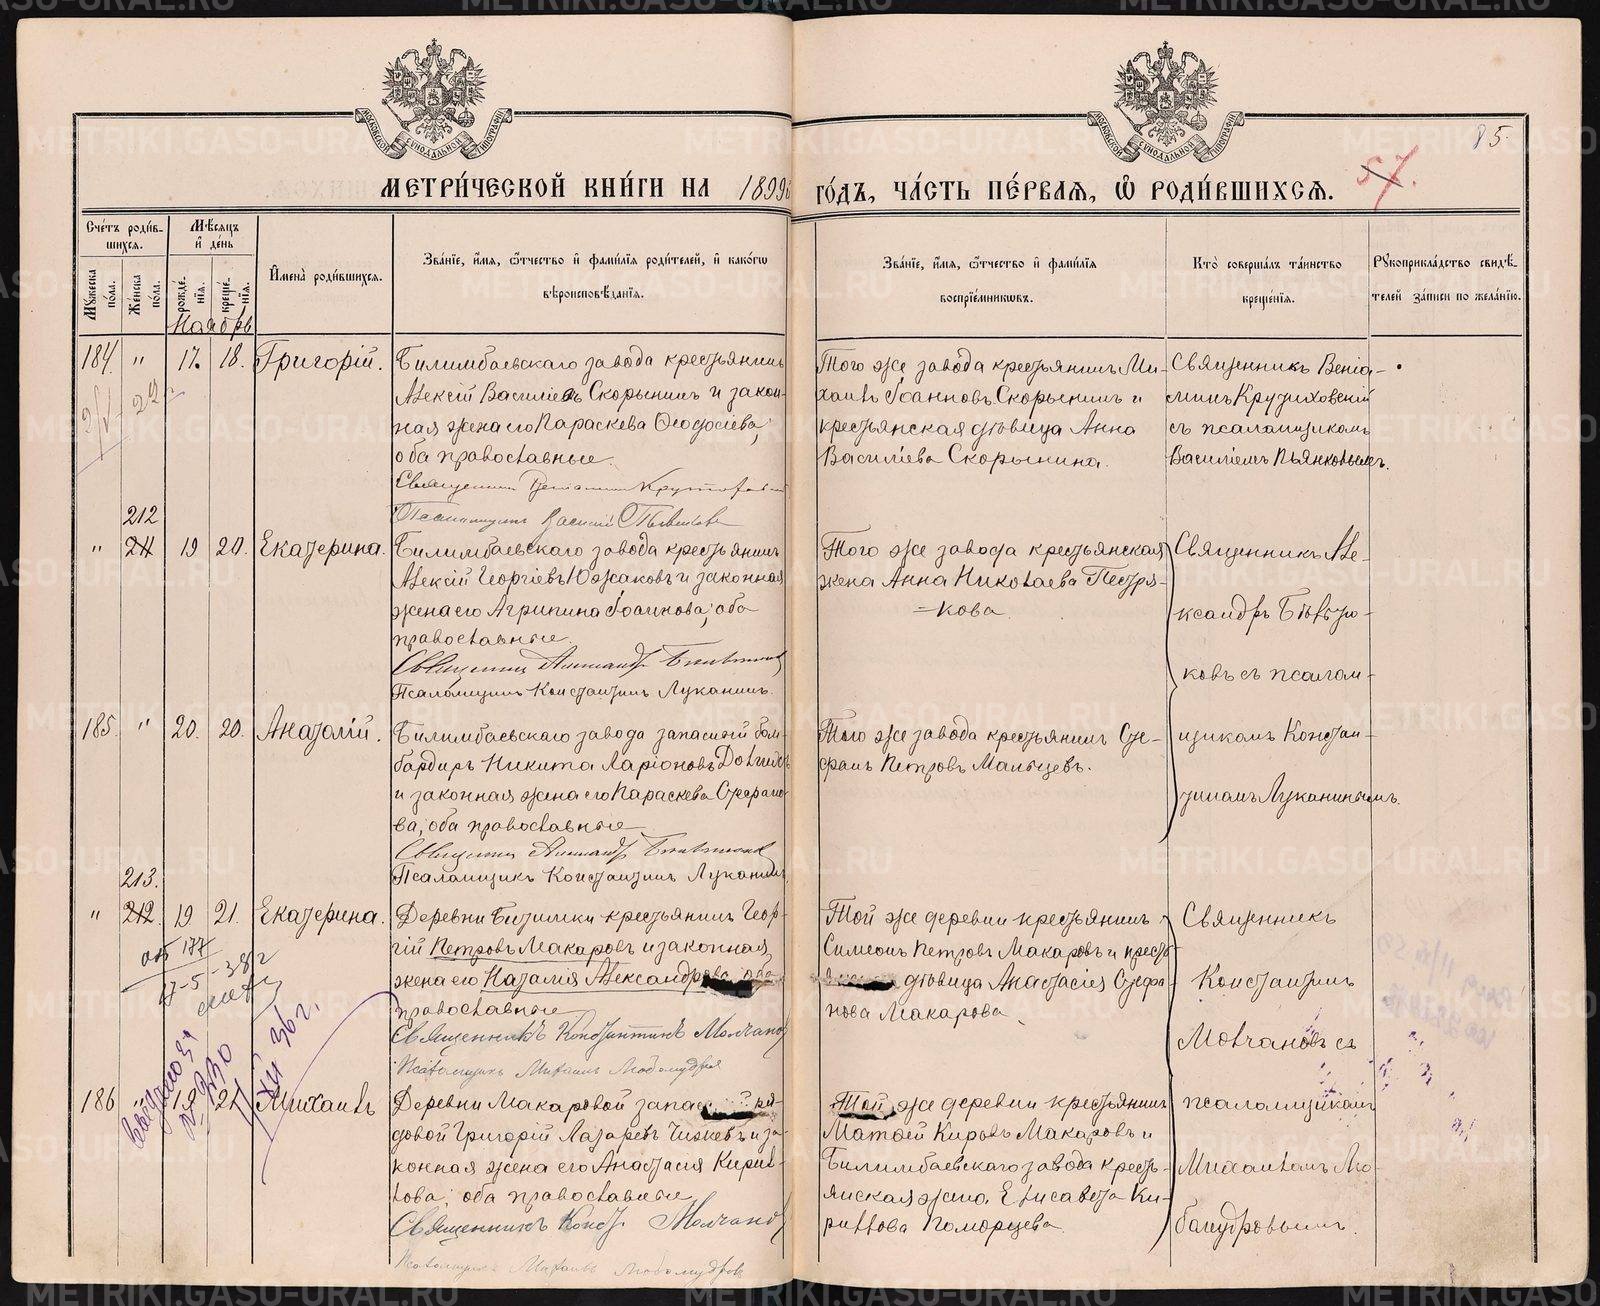 МОСКОВСКОЙ СѴНОДАЛЬНОЙ ТИПОГРАФІИ
МОСКОВСКОЙ СѴНОДАЛЬНОЙ ТИПОГРАФІИ
85.
57.
МЕТРИ́ЧЕСКОЙ КНИ́ГИ НА 1899й
ГО́ДЪ, ЧА́СТЬ ПЕ́РВАЯ, Ѿ РОДИ́ВШИХСЯ.
Сче́тъ роди́в-
шихся.
Мѣ́сяцъ
и҆ де́нь
Мꙋ́жеска по́ла.
Же́нска по́ла.
рожде́-
нїя.
креще́-
нїя.
И҆мена̀ роди́вшихся.
Зва́нїе, и҆́мя, ѻ҆́тчество и҆ фами́лїя роди́телей, и҆ како́гѡ
вѣроисповѣ́данїя.
Зва́нїе, и҆́мя, ѻ҆́тчество и҆ фами́лїя
воспрїе́мникѡвъ.
Кто̀ соверша́лъ та́инство
креще́нїя.
Рꙋкоприкла́дство свидѣ́-
телей за́писи по жела́нїю.
Ноябрь
184. " 17. 18. Григорій.
Билимбаевскаго завода крестьянинъ
Алексій Василіевъ Скорынинъ и закон-
ная жена его Параскева Ѳеодосіева,
оба православные.
Священникъ Веніаминъ
Псаломщикъ Василій Пьянковъ
Того же завода крестьянинъ Ми-
хаилъ Іоанновъ Скорынинъ и
крестьянская дѣвица Анна
Василіева Скорынина.
Священникъ Веніа-
минъ
съ псаломщикомъ
Василіемъ Пьянковымъ.
212
" 211 19 20. Екатерина.
Билимбаевскаго завода крестьянинъ
Алексій Георгіевъ Южаковъ и законная
жена его Агрипина Іоаннова, оба
православные.
Священникъ Александръ
Псаломщикъ Константинъ Луканинъ.
Того же завода крестьянская
жена Анна Николаева Пестря-
=кова
Священникъ Але-
ксандръ
ковъ съ псалом-
щикомъ Констан-
тиномъ Луканинымъ.
185. " 20. 20. Анатолій.
Билимбаевскаго завода запасной бом-
бардиръ Никита Ларіоновъ
и законная жена его Параскева Стефано-
ва, оба православные
Священникъ Александръ
Псаломщикъ Константинъ Луканинъ
Того же завода крестьянинъ Сте-
фанъ Петровъ Мальцевъ.
213.
" 212. 19 21. Екатерина.
Деревни Битимки крестьянинъ Геор-
гій Петровъ Макаровъ и законная
жена его Наталія Александрова, оба
православные
Священникъ Константинъ Молчановъ
Псаломщикъ Михаилъ
Той же деревни крестьянинъ
Симеонъ Петровъ Макаровъ и кресть-
дѣвица Анастасія Стефа-
нова Макарова
Священникъ
Константинъ
Молчановъ съ
псаломщикомъ
Михаиломъ Лю-
177
17-5-38г
XII 36 г.
186 " 19 21 Михаилъ
Деревни Макаровой запасной ря-
довой Григорій Лазаревъ и за-
конная жена его Анастасія Кирил-
лова, оба православные
Священникъ Конст. Молчановъ
Псаломщикъ Михаилъ Любомудровъ
Той же деревни крестьянинъ
Матѳей Кировъ Макаровъ и
Билимбаевскаго завода кресть-
янская жена Елисавета Ки-
риллова Поморцева
METRIKI.GASO-URAL.RU